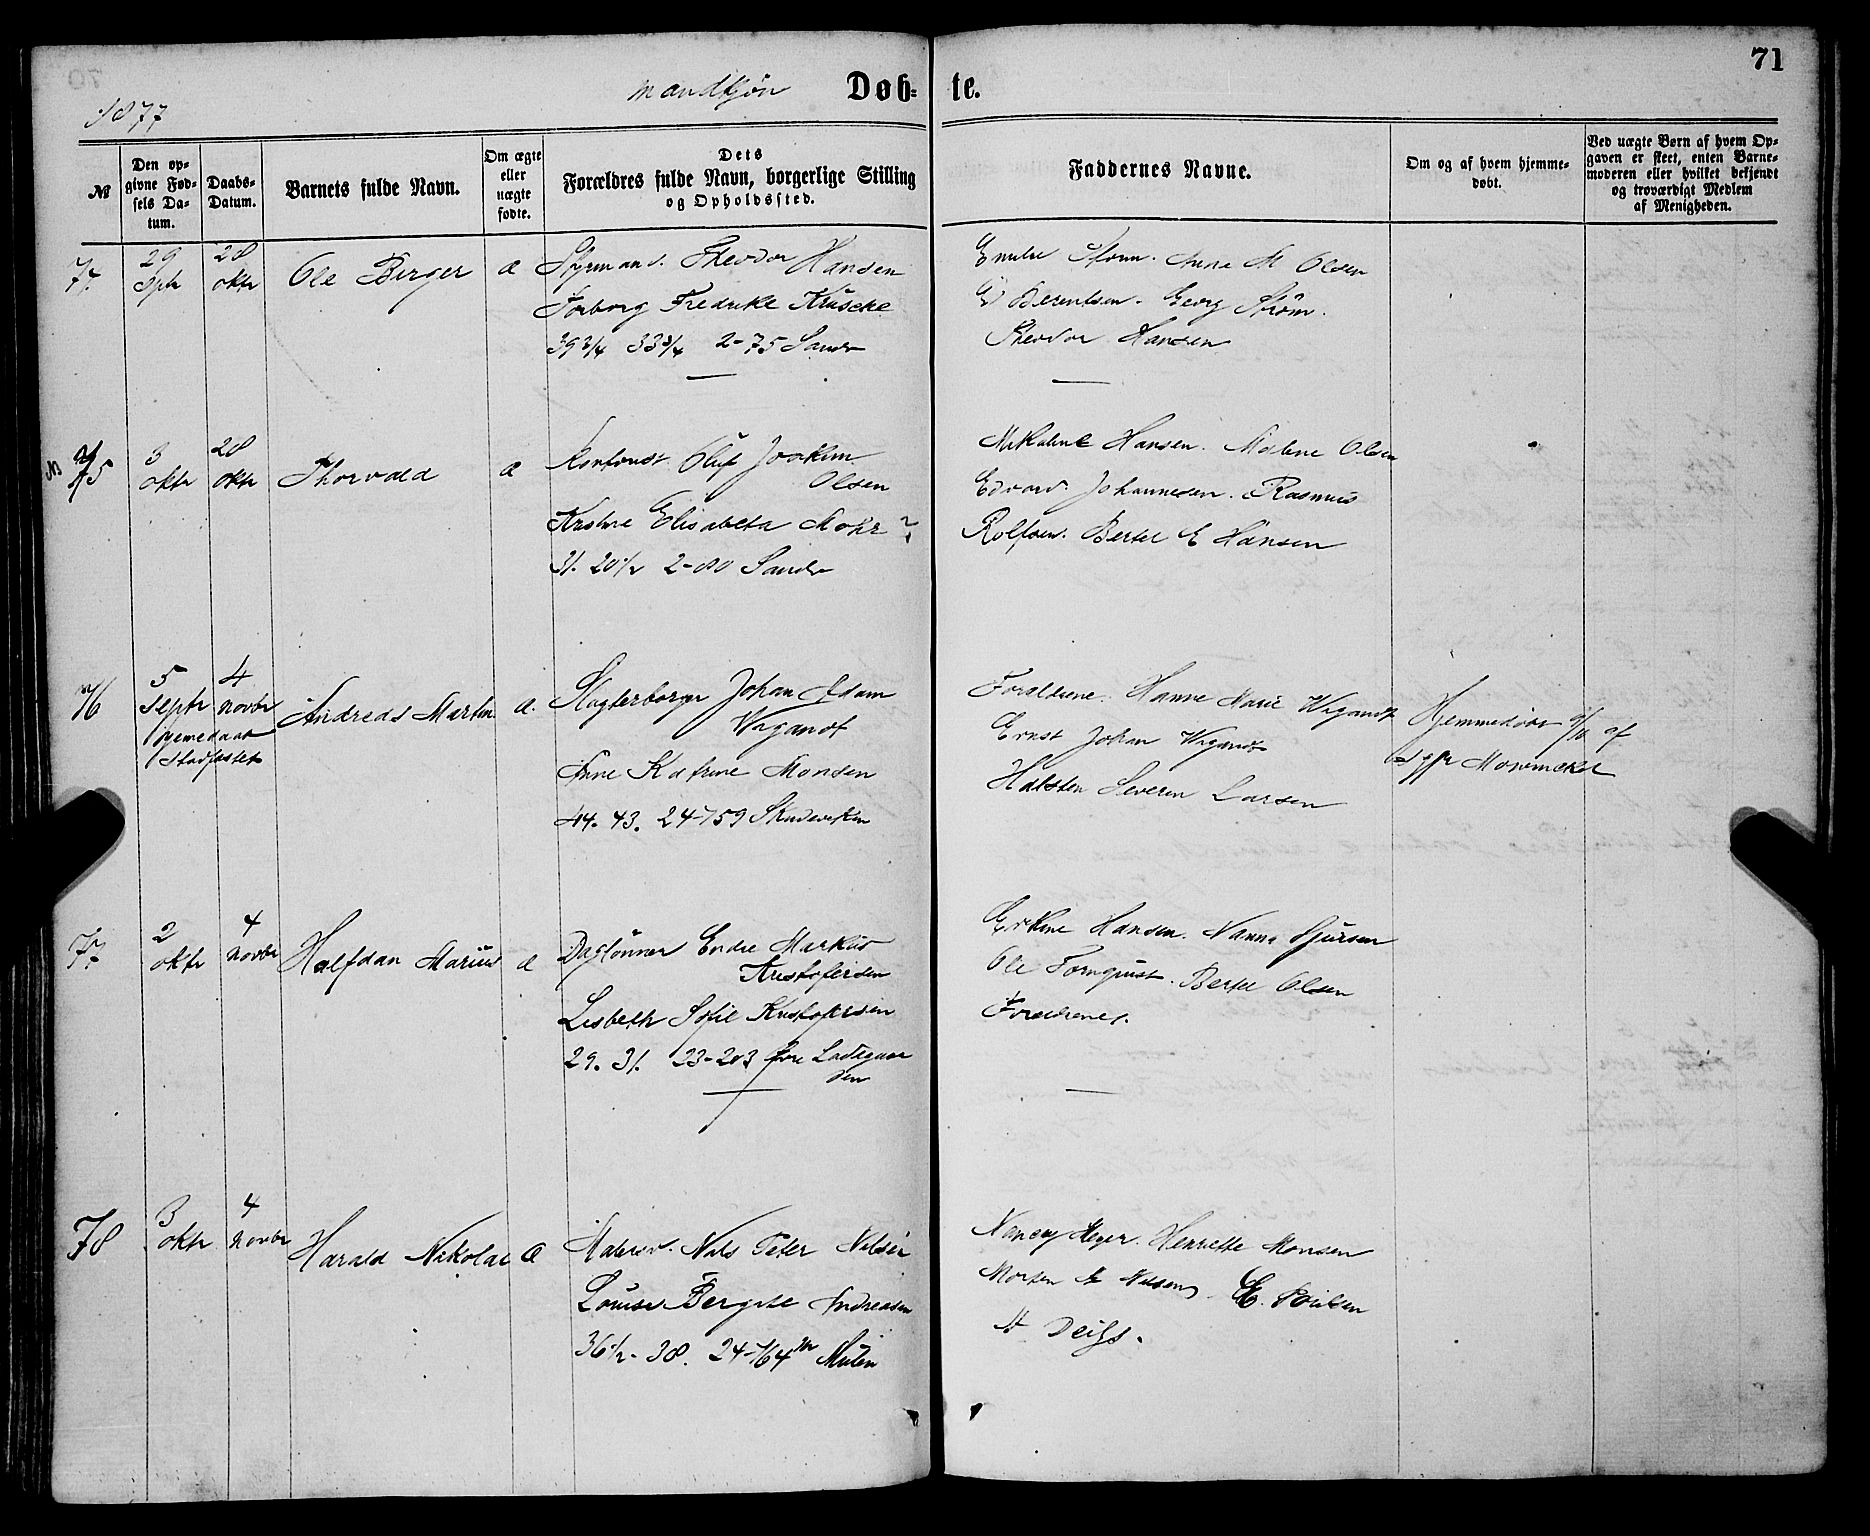 71
1877
mandkjøn
Døb-
te.
№
Den op-
givne Fød-
sels Da-
tum.
Daabs-
Datum.
Barnets fulde Navn.
Om ægte
eller
uægte
fødte.
Dets
Forældres fulde Navn, borgerlige Stilling
og Opholdssted.
Faddernes Navne.
Om og af hvem hjemme-
døbt.
Ved uægte Børn af hvem Op-
gaven er skeet, enten Barne-
moderen eller hvilket bekjendt
og troværdigt Medlem
af Menigheden.
29 Sptr
28 oktr
Ole Berger
æ
Styrmand. Theodor Hansen
Fredrikke
39 3/4 33 3/4 2-75 Sandv
Strøm. Anne M Olsen
Berentsen. Georg Strøm.
Theodor Hansen
75
3 oktr
28 oktr
Thorvald
æ
Oluf Joakim
Olsen
Elisabeta Mohr ?
31. 20 1/2 2-80 Sandv
Hansen. Olsen
Edvard Johannesen. Rasmus
Rolfsen. Bertel E Hansen
76
5 Septr
4 novbr
Andreas Martin
æ.
Slagterborger Johan Adam
Wigandt
Anne Katrine Monsen
44. 43. 24-159 Skudeviken
Forældrene. Hanne Marie Wigandt
Ernst Johan Wigandt
Halsten Severin Larsen
Hjemmedøbt af
77
2 oktr
4 novbr
Halfdan Marius
æ
Daglønner Endre Markus
Kristofersen
Lisbeth Sofie Kristofersen
29. 31. 23-203 Ladegaar
den
Hansen. Nanna Sjursen
Ole Tornquist. Bertel Olsen
Forældrene.
78
3 oktr
4 novbr
Harald Nikolai
æ
Malersv. Nils Peter Nilsen
Louise Bergite Andreasen
36 1/2- 38. 24-164 Mulen
Nancy Meyer. Henriette Monsen
Morten Nilsen. C. Poulsen